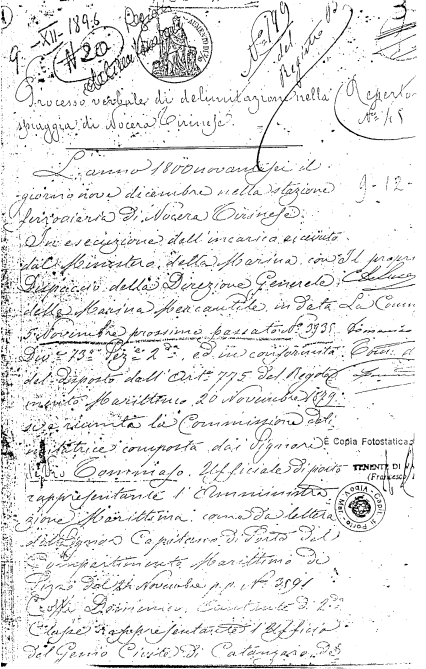 9 - XII - 1896
N° 20
N° 749
del
Registro
3
Processo verbale di delimitazione nella
spiaggia di Nocera Tirinese.
Reperto
N° 45
L'anno 1800novantasei il
giorno nove dicembre nella stazione
ferroviaria di Nocera Tirinese.
9-12-
In esecuzione dell'incarico ricevuto
dal Ministero della Marina con il
Dispaccio della Direzione Generale
della Marina Mercantile in data
La Comm
5 Novembre prossimo passato N° 3935
Div.e 13a Sez.e 2da, ed in conformità
del disposto dall'Art. 775 del Regola
mento Marittimo 20 Novembre 1879
si è riunita la Commissione deli
mitatrice composta dai Signori
È Copia Fotostatica
Tommaso Ufficiale di porto
TENENTE DI VA
(Francesco
rappresentante l'Amministra
zione Marittima come da lettera
del Signor Capitano di Porto del
Compartimento Marittimo di
Pizzo del 24 Novembre p.p. N° 3591
Domenico, Aiutante di 2da
Classe rappresentante l'Ufficio
del Genio Civile di Catanzaro,